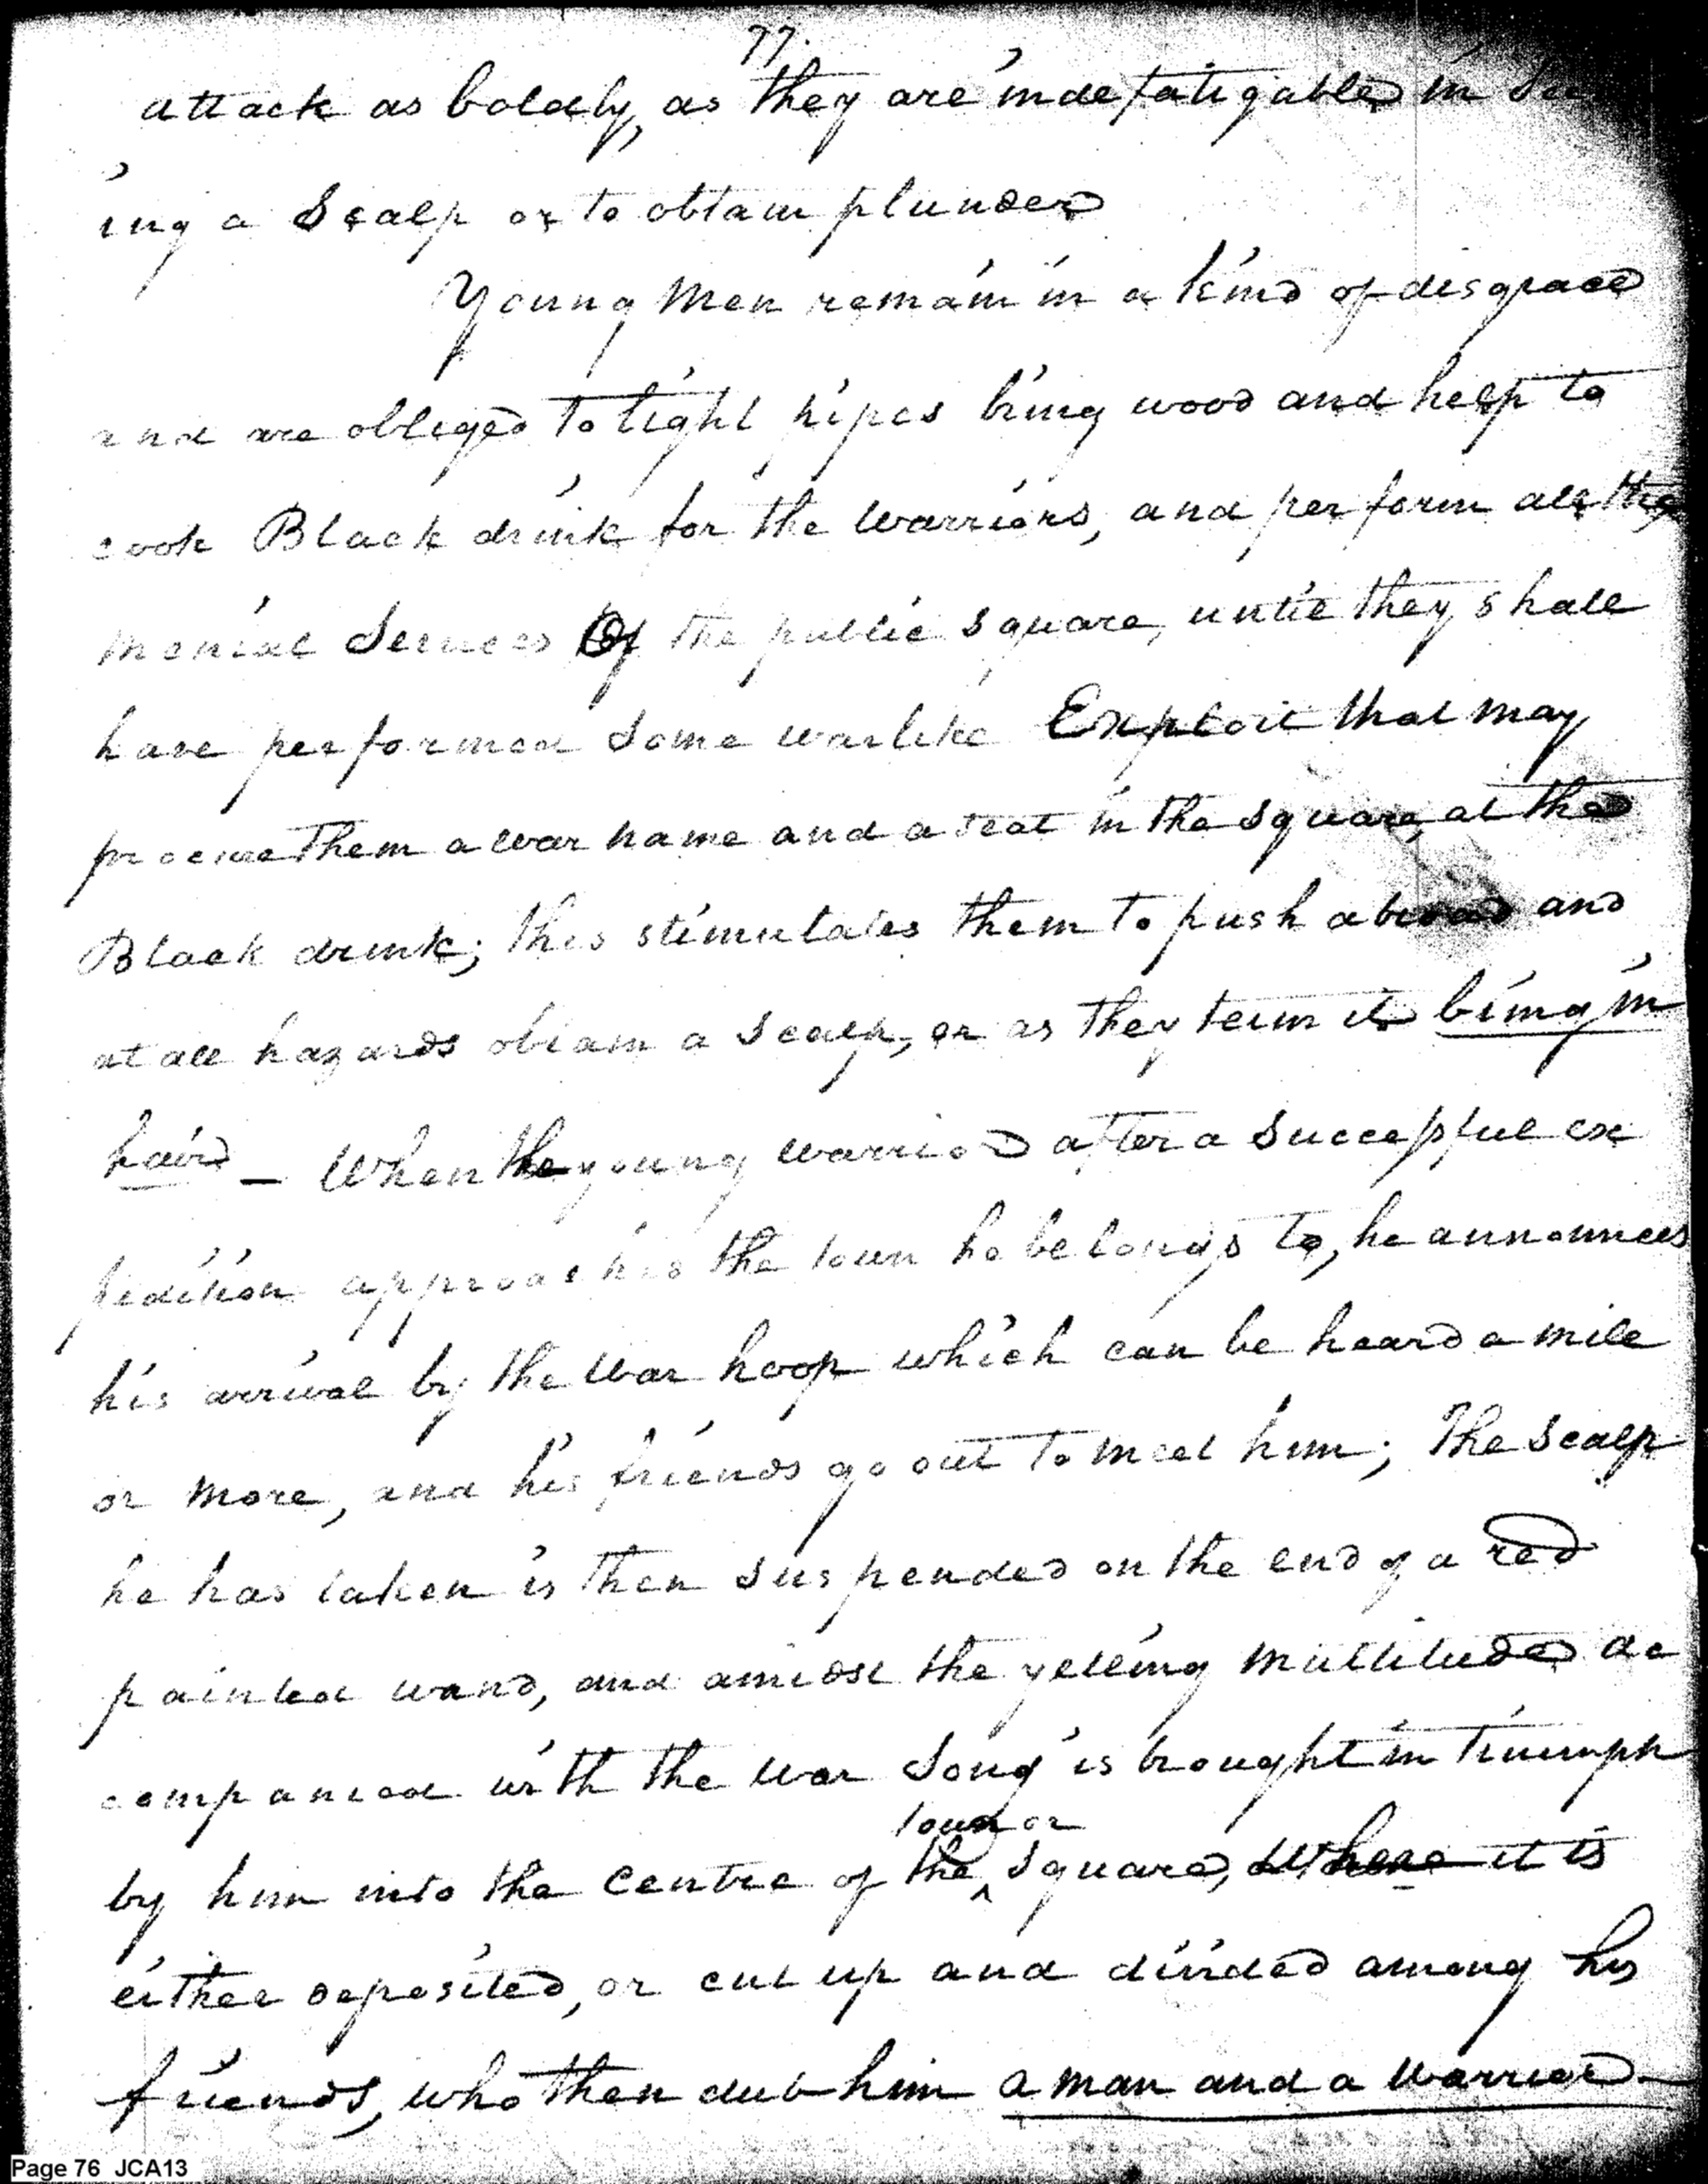 77.
attack as boldly, as they are indefatigable in
ing a Scalp or to obtain plunder
Young Men remain in a kind of disgrace
and are obliged to light pipes bring wood and help to
cook Black drink for the warriors, and perform all the
menial Services Of the public square, until they shall
have performed some warlike Exploit that may
procure them a war name and a seat in the square, at the
Black drink; this stimulates them to push abroad and
at all hazards obtain a Scalp, or as they term it bring in
hair — When the young warrior after a successful ex
pedition approaches the town he belongs to, he announces
his arrival by the War hoop which can be heard a mile
or more, and his friends go out to meet him; The Scalp
he has taken is then suspended on the end of a red
painted wand, and amidst the yelling Multitude ac
companied with the War Song is brought in Triumph
town or
by him into the Centre of the ^ Square, Where it is
either deposited, or cut up and divided among his
friends, who then dub him a man and a Warrior —
Page 76 JCA13